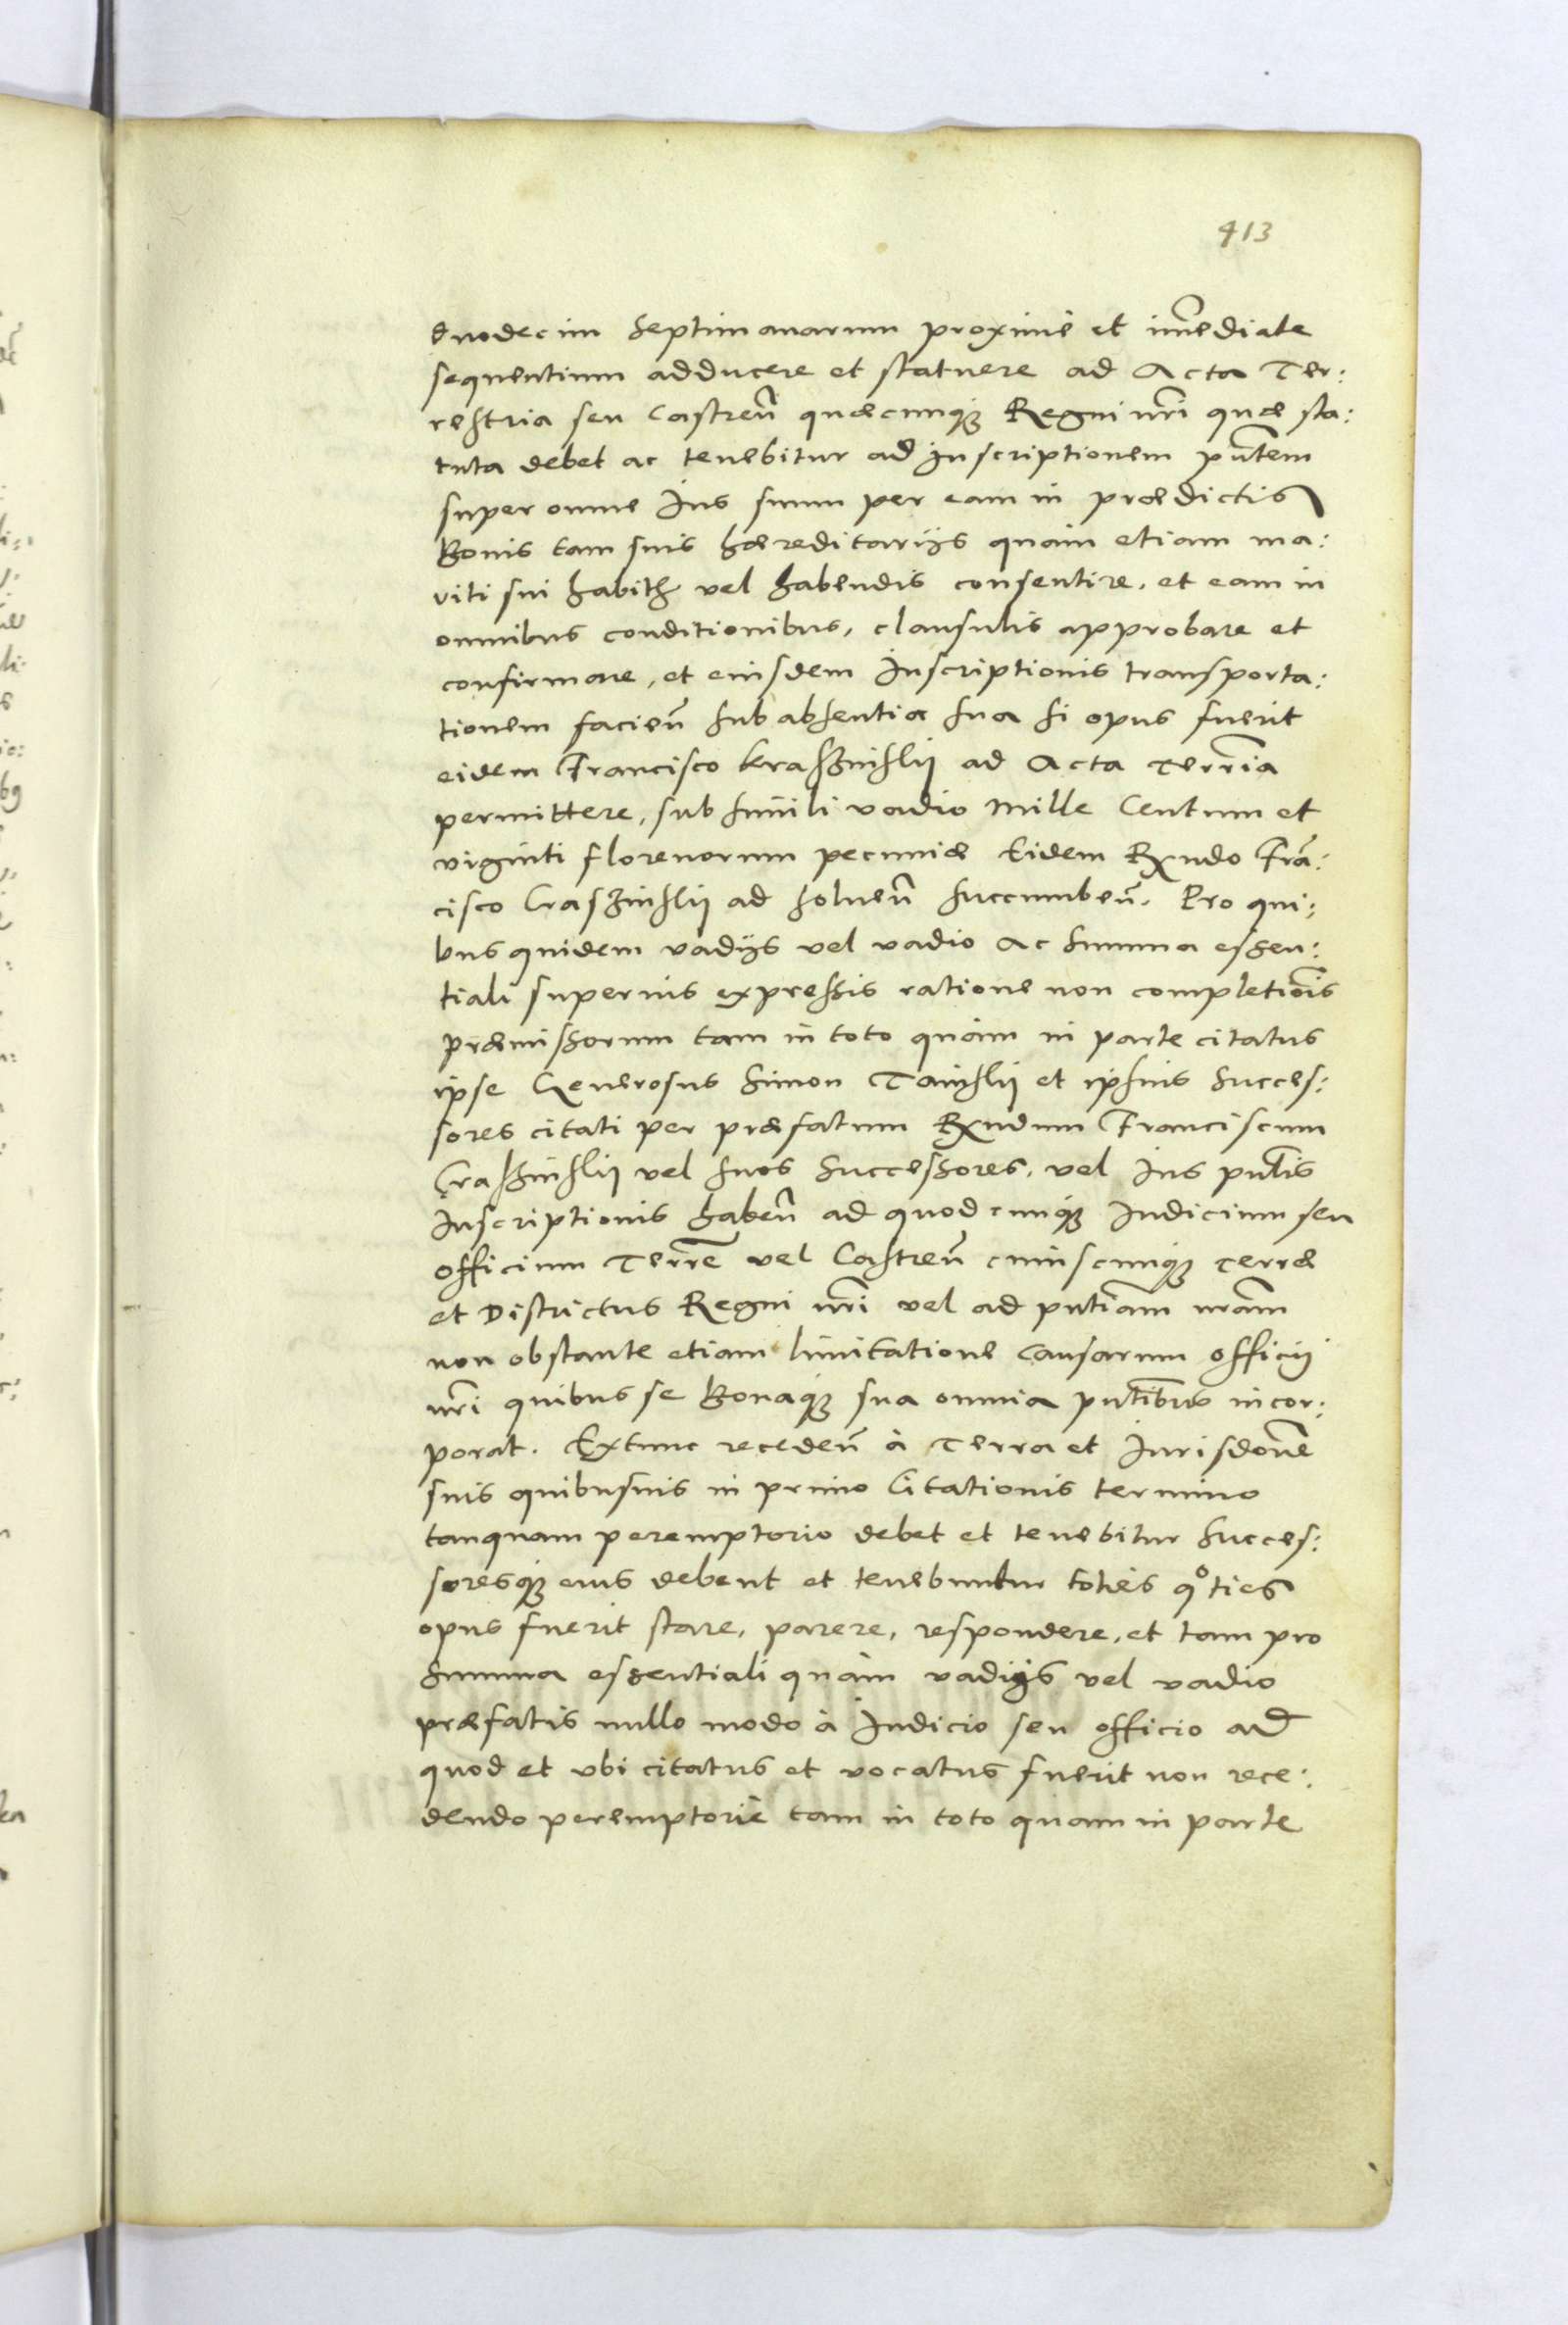 413
duodecim septimanarum proximè et im̃ediate
sequentium adducere et statuere ad Acta Ter:
restria seu Castreñ quæcunq̃ Regni nr̃i quæ sta:
tuta debet ac tenebitur ad inscriptionem pñtem
super omne Ius suum per eam in prædictis
Bonis tam suis hæreditarijs quàm etiam ma:
riti sui habitis vel habendis consentire, et eam in
omnibus conditionibus, clausulis approbare et
confirmare, et eiusdem Inscriptionis transporta:
tionem facieñ sub absentia sua si opus fuerit
eidem Francisco Kraszinskij ad Acta Terrr̃ia
permittere, sub simili vadio Mille Centum et
viginti florenorum pecuniæ Eidem Rx̃ndo Frã:
cisco Craszinskij ad solueñ succumbeñ. Pro qui:
bus quidem vadijs vel vadio ac summa essen:
tiali superius expressis ratione non completiõis
præmissorum tam in toto quàm in parte citatus
ipse Generosus Simon Tainskij et ipsius Succes:
sores citati per præfatum Rx̃ndum Franciscum
Craszinskij vel suos Successores, vel Ius pñtis
Inscriptionis habeñ ad quodcunq̃ Iudicium seu
officium Terrr̃e vel Castreñ cuiuscunq̃ Terræ
et Districtus Regni nr̃i vel ad pñtiam nr̃am
non obstante etiam limitatione Causarum officij
nr̃i quibus se Bonaq̃ sua omnia pñtibus incor:
porat. Extunc recedeñ à Terra et Iurisdõne
suis quibusuis in primo Citationis termino
tanquam peremptorio debet et tenebitur Succes:
soresq̃ eius debent et tenebuntur toties qͦties
opus fuerit stare, parere, respondere, et tam pro
summa essentiali quàm vadijs vel vadio
præfatis nullo modo à Iudicio seu officio ad
quod et vbi citatus et vocatus fuerit non rece:
dendo peremptoriè tam in toto quam in parte